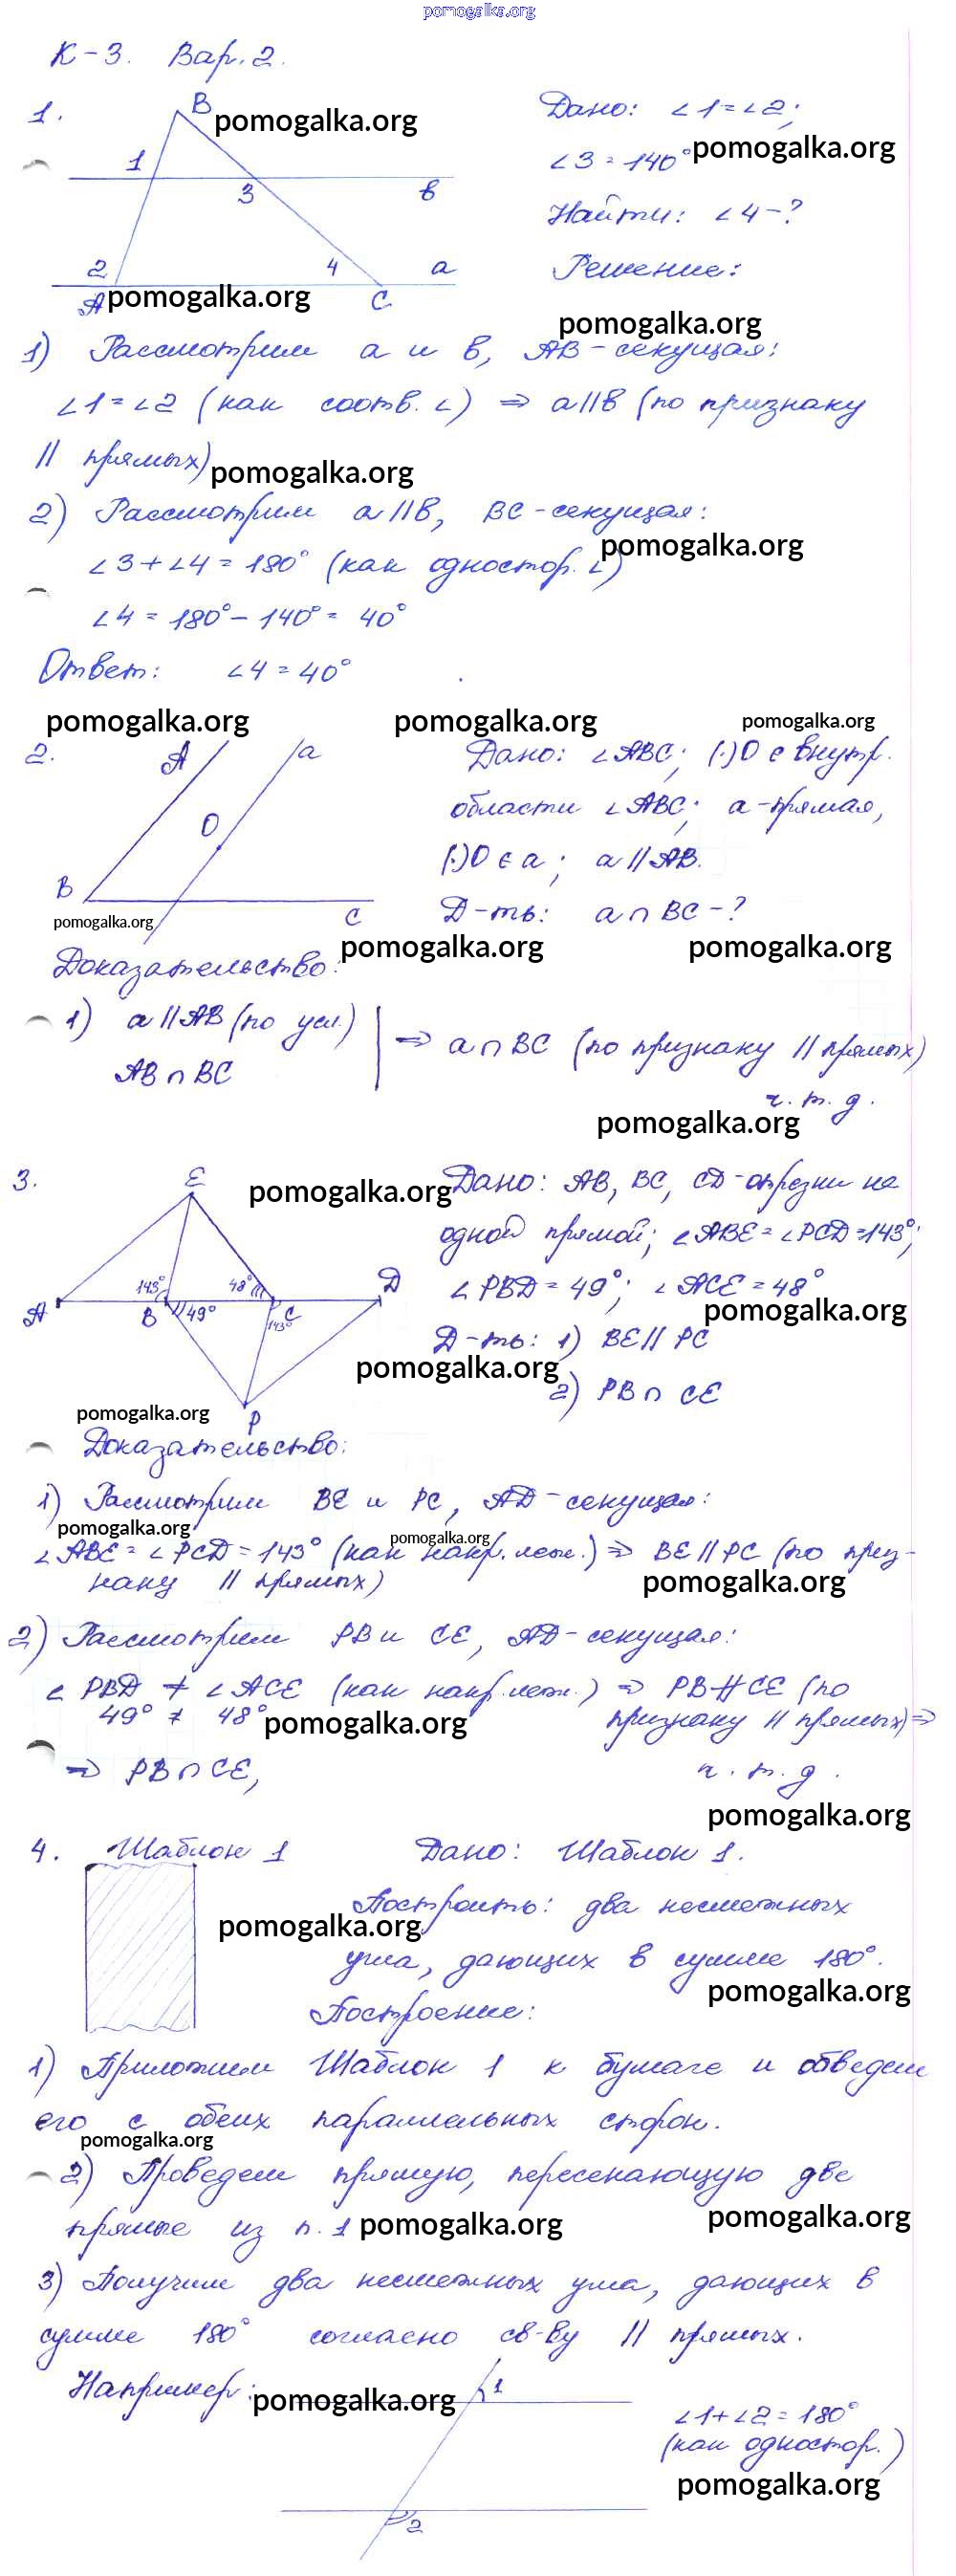 pomogalka.org
К-3. Вар. 2.
1.
B
pomogalka.org
1
3
в
2
4
a
A
pomogalka.org
C
Дано: ∠1=∠2;
∠3=140°
pomogalka.org
Найти: ∠4-?
Решение:
pomogalka.org
1) Рассмотрим а и в, АВ-секущая:
∠1=∠2 (как соотв. ∠) ⇒ а||в (по признаку
|| прямых)
pomogalka.org
2) Рассмотрим а||в, ВС-секущая:
pomogalka.org
∠3+∠4=180° (как одностор. ∠)
∠4 = 180° - 140° = 40°
Ответ: ∠4 = 40°
pomogalka.org pomogalka.org pomogalka.org
2.
A
a
O
B
C
pomogalka.org
Дано: ∠ABC; (·)O ∈ внутр.
области ∠ABC; а-прямая,
(·)O ∈ a; a || AB.
Д-ть: a ∩ BC-?
pomogalka.org pomogalka.org
Доказательство:
1) a||AB (по усл.)
AB ∩ BC
⇒ a ∩ BC (по признаку || прямых)
ч.т.д.
pomogalka.org
3.
E
pomogalka.org
A
143°
B
49°
48°
C
143°
D
P
Дано: AB, BC, CD-отрезки на
одной прямой; ∠ABE=∠PCD=143°;
∠PBD=49°; ∠ACE=48°
pomogalka.org
Д-ть: 1) BE || PC
pomogalka.org
2) PB ∩ CE
pomogalka.org
Доказательство:
1) Рассмотрим BE и PC, AD-секущая:
pomogalka.org pomogalka.org
∠ABE=∠PCD=143° (как накр. леж.) ⇒ BE||PC (по приз-
наку || прямых)
pomogalka.org
2) Рассмотрим PB и CE, AD-секущая:
∠PBD ≠ ∠ACE (как накр. леж.) ⇒ PB∦CE (по
49° ≠ 48°
pomogalka.org
признаку || прямых) ⇒
⇒ PB ∩ CE,
ч.т.д.
pomogalka.org
4. Шаблон 1
Дано: Шаблон 1.
Построить: два несмежных
pomogalka.org
угла, дающих в сумме 180°.
pomogalka.org
Построение:
1) Приложим Шаблон 1 к бумаге и обведем
его с обеих параллельных сторон.
pomogalka.org
2) Проведем прямую, пересекающую две
прямые из п.1
pomogalka.org pomogalka.org
3) Получим два несмежных угла, дающих в
сумме 180° согласно св-ву || прямых.
Например:
pomogalka.org
1
∠1+∠2=180°
(как одностор.)
pomogalka.org
2